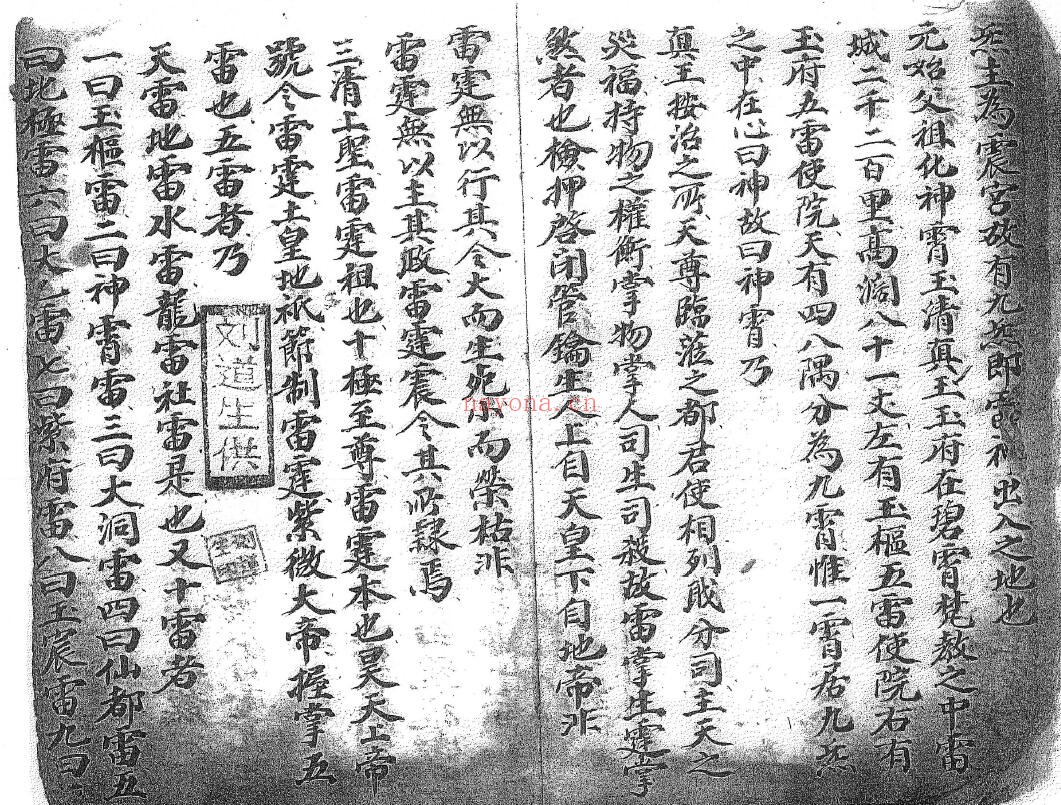 炁主為震宮故有九炁即雷神出入之地也
元始父祖化神霄玉清真王玉府在碧霄梵炁之中雷
城二千二百里高濶八十一丈左有玉樞五雷使院右有
玉府五雷使院天有四八隅分為九霄惟一霄居九炁
之中在心曰神故曰神霄乃
真王按治之所天尊臨莅之都君使相列職分司主天之
災福持物之權衡掌物掌人司生司殺故雷掌生霆掌
煞者也檢押啓閉管鑰生煞上自天皇下自地帝非
雷霆無以行其令大而生死小而榮枯非
雷霆無以主其政雷霆震令其所隸焉
三清上聖雷霆祖也十極至尊雷霆本也昊天上帝
號令雷霆土皇地祇節制雷霆紫微大帝握掌五
雷也五雷者乃
天雷地雷水雷龍雷社雷是也又十雷者
一曰玉樞雷二曰神霄雷三曰大洞雷四曰仙都雷五
曰北極雷六曰太乙雷七曰紫府雷八曰玉宸雷九曰
刘道生供
nayona.cn